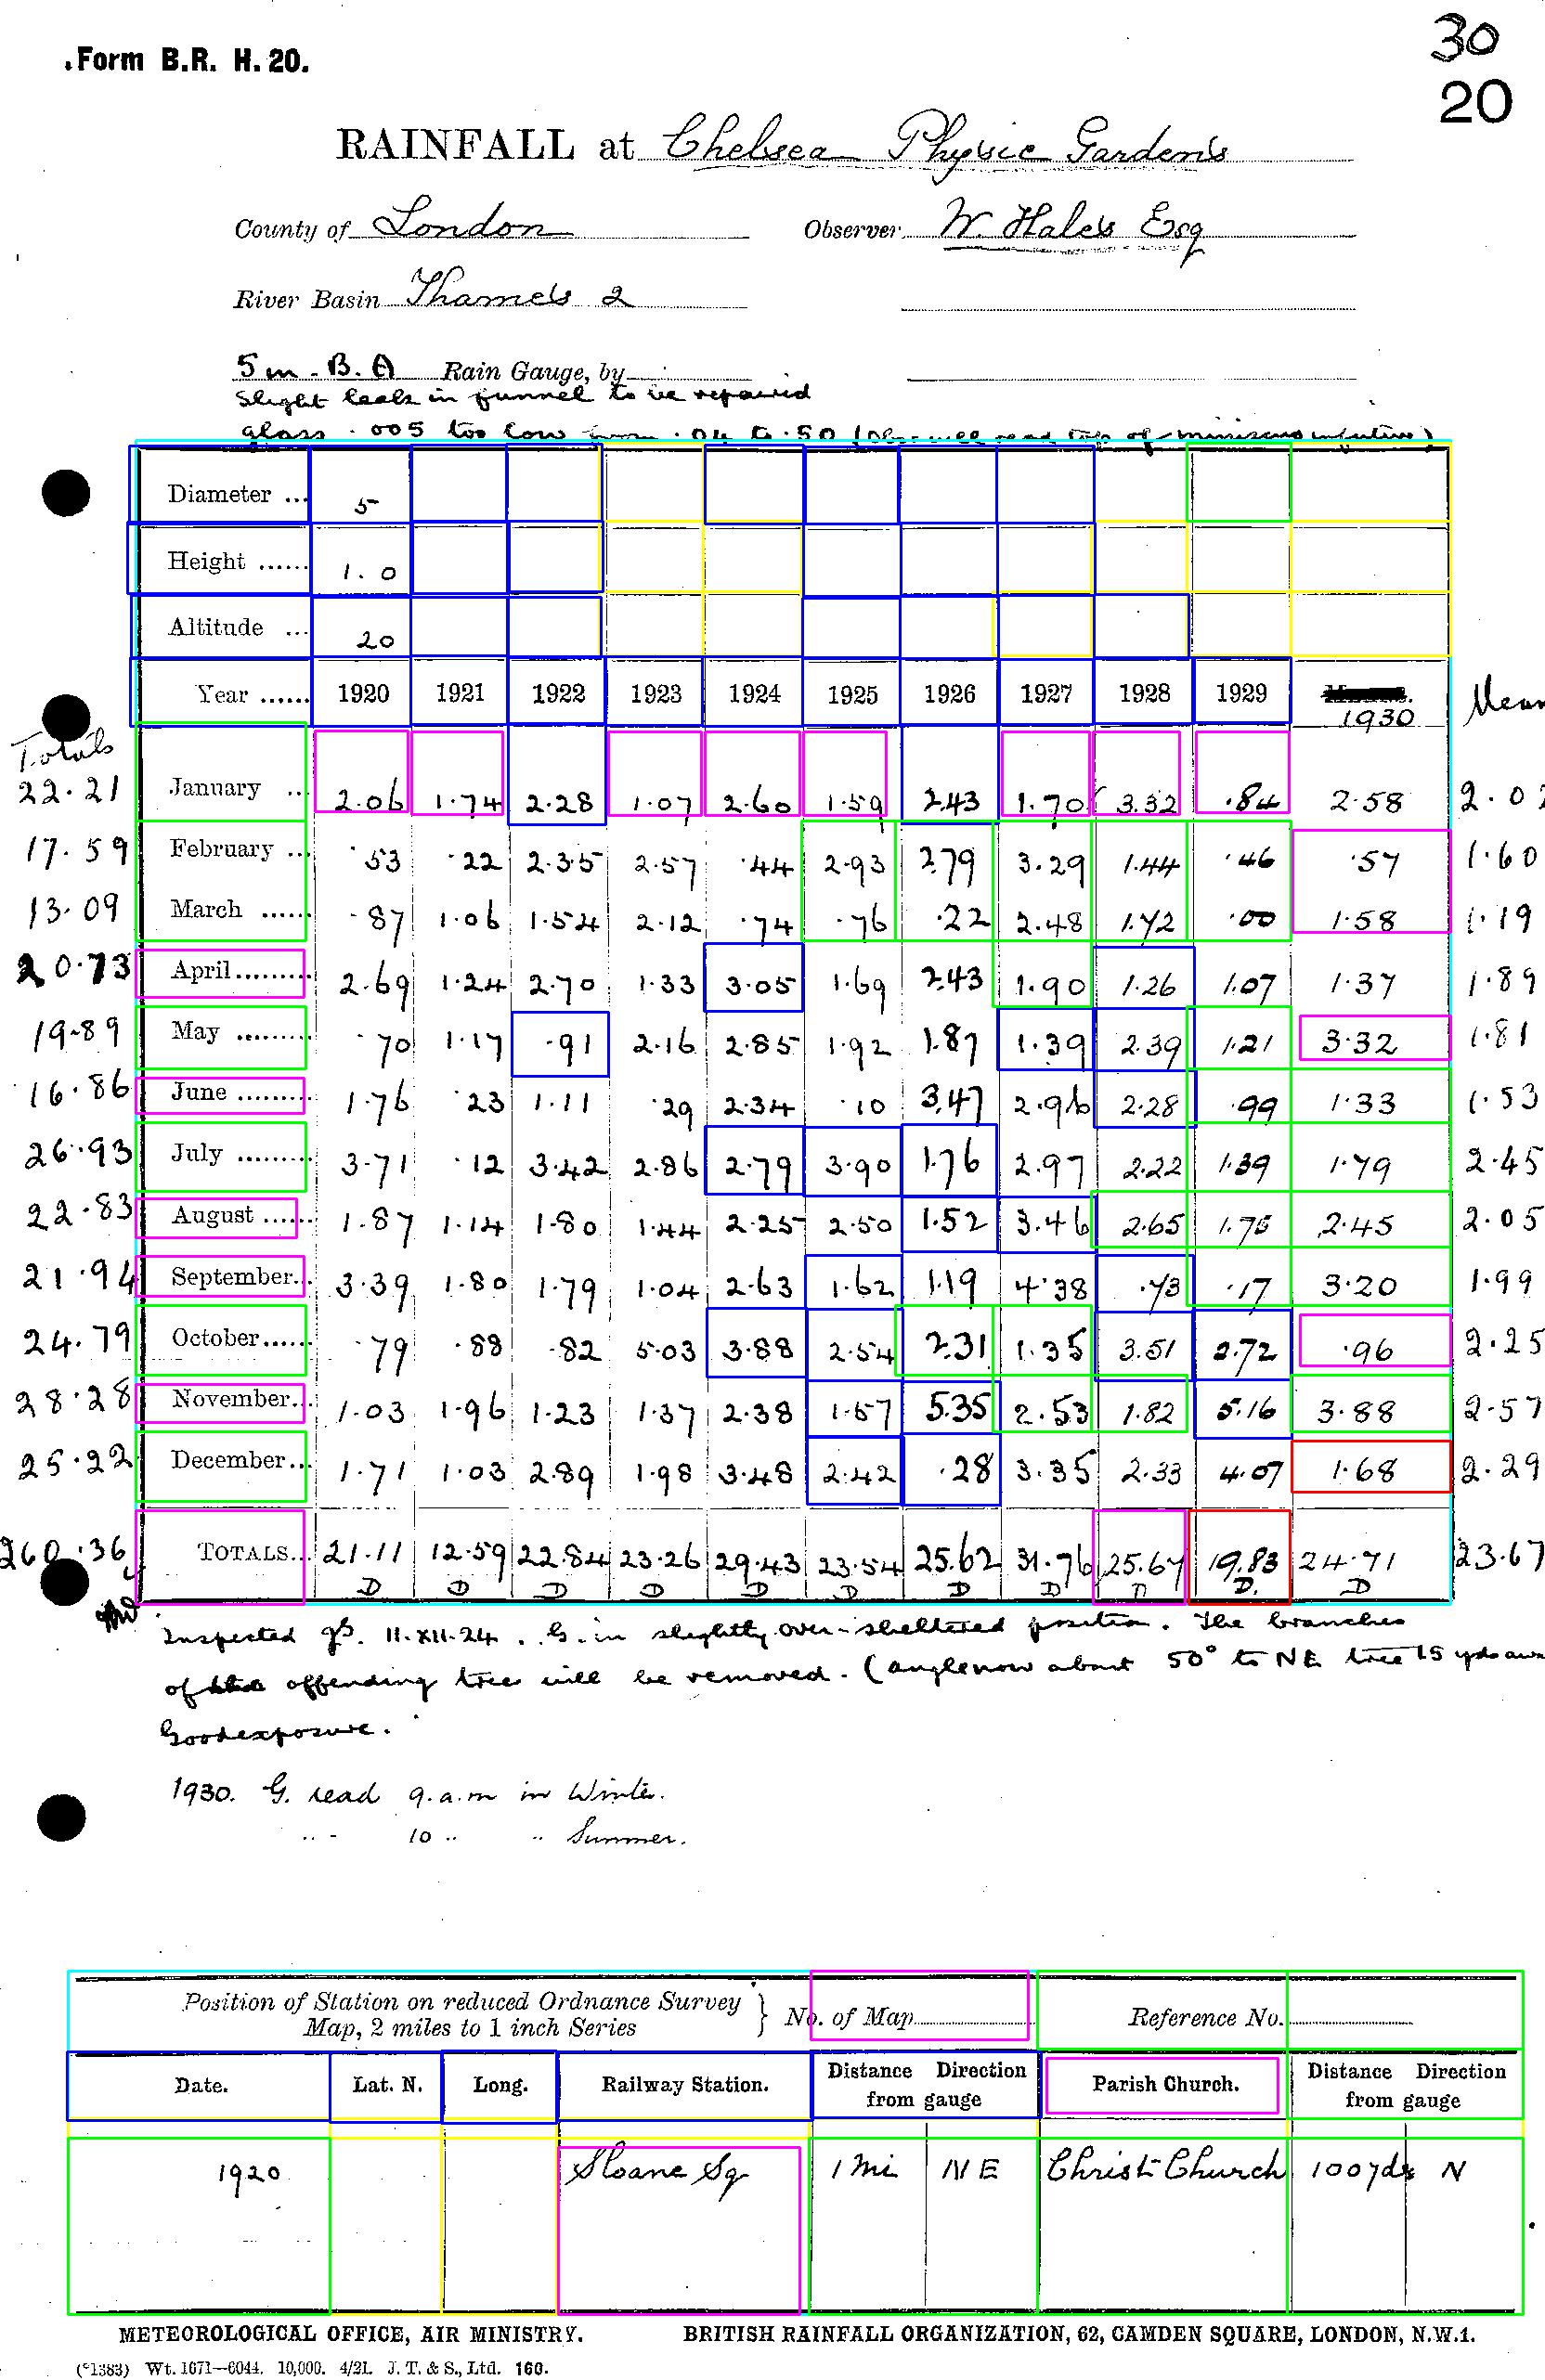 Form B.R. H. 20.
30
20
RAINFALL at Chelsea Physic Gardens
County of London Observer W. Hales Esq
River Basin Thames 2
5 in. B. A Rain Gauge, by
Slight leak in funnel to be repaired
glass .005 too low from .04 to .50 (Obs. will read top of miniscus in future)
Diameter ... 5
Height ...... 1.0
Altitude ... 20
Year ...... 1920 1921 1922 1923 1924 1925 1926 1927 1928 1929 1930 Mean
Totals
22.21 January ... 2.06 1.74 2.28 1.07 2.60 1.59 2.43 1.70 3.32 .84 2.58 2.02
17.59 February ... .53 .22 2.35 2.57 .44 2.93 2.79 3.29 1.44 .46 .57 1.60
13.09 March ...... .87 1.06 1.54 2.12 .74 .76 .22 2.48 1.72 .00 1.58 1.19
20.73 April......... 2.69 1.24 2.70 1.33 3.05 1.69 2.43 1.90 1.26 1.07 1.37 1.89
19.89 May ......... .70 1.17 .91 2.16 2.85 1.92 1.87 1.39 2.39 1.21 3.32 1.81
16.86 June ......... 1.76 .23 1.11 .29 2.34 .10 3.47 2.96 2.28 .99 1.33 1.53
26.93 July ......... 3.71 .12 3.42 2.86 2.79 3.90 1.76 2.97 2.22 1.39 1.79 2.45
22.83 August ...... 1.87 1.14 1.80 1.44 2.25 2.50 1.52 3.46 2.65 1.75 2.45 2.05
21.94 September... 3.39 1.80 1.79 1.04 2.63 1.62 1.19 4.38 .73 .17 3.20 1.99
24.79 October...... .79 .88 .82 5.03 3.88 2.54 2.31 1.35 3.51 2.72 .96 2.25
28.28 November... 1.03 1.96 1.23 1.37 2.38 1.57 5.35 2.53 1.82 5.16 3.88 2.57
25.22 December... 1.71 1.03 2.89 1.98 3.48 2.42 .28 3.35 2.33 4.07 1.68 2.29
260.36 TOTALS... 21.11 12.59 22.84 23.26 29.43 23.54 25.62 31.76 25.67 19.83 24.71 23.67
D D D D D D D D D D. D
Inspected gd. 11.XII.24. G. in slightly over-sheltered position. The branches
of the offending tree will be removed. (angle now about 50° to NE tree 15 yds
Good exposure.
1930. G. read 9.a.m in Winter.
.. - 10 .. .. Summer.
Position of Station on reduced Ordnance Survey Map, 2 miles to 1 inch Series } No. of Map Reference No.
Date. Lat. N. Long. Railway Station. Distance Direction from gauge Parish Church. Distance Direction from gauge
1920 Sloane Sq 1 mi NE Christ Church 100 yds N
METEOROLOGICAL OFFICE, AIR MINISTRY. BRITISH RAINFALL ORGANIZATION, 62, CAMDEN SQUARE, LONDON, N.W.1.
(*1383) Wt. 1671—6044. 10,000. 4/21. J. T. & S., Ltd. 160.